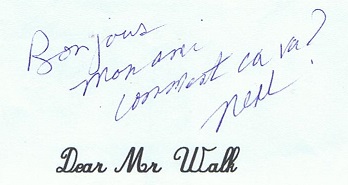 Bonjous
mon ami
comment ca va?
Dear Mr Walk